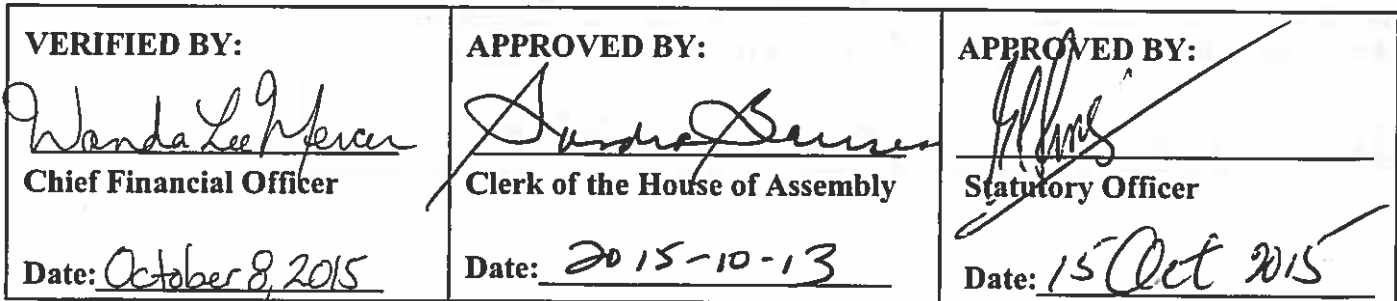 VERIFIED BY:
Wanda Lee Mercer
Chief Financial Officer
Date: October 8, 2015
APPROVED BY:
Sandra Barnes
Clerk of the House of Assembly
Date: 2015-10-13
APPROVED BY:
Statutory Officer
Date: 15 Oct 2015